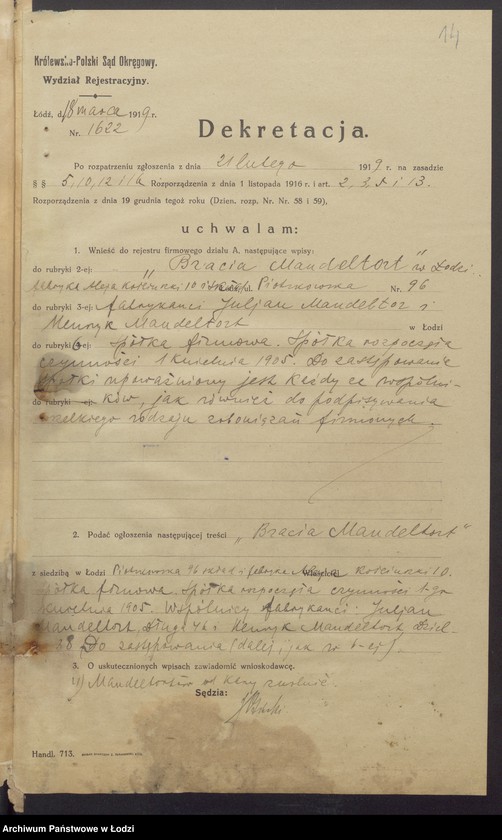 14
Królewsko-Polski Sąd Okręgowy.
Wydział Rejestracyjny.
Łódź, d. 18 marca 1919 r.
Nr. 1622
Dekretacja.
Po rozpatrzeniu zgłoszenia z dnia 21 lutego 1919 r. na zasadzie
§ § 5, 10, 12 i Rozporządzenia z dnia 1 listopada 1916 r. i art. 2, 3, i 13.
Rozporządzenia z dnia 19 grudnia tegoż roku (Dzien. rozp. Nr. Nr. 58 i 59),
uchwalam:
1. Wnieść do rejestru firmowego działu A, następujące wpisy:
do rubryki 2-ej: „Bracia Mandeltort" w Łodzi
fabryka Aleja Kościuszki 10 ul. Piotrkowska Nr. 96
do rubryki 3-ej: fabrykanci Juljan Mandeltort i
Henryk Mandeltort w Łodzi
do rubryki 6-ej: Spółka firmowa. Spółka rozpoczęła
czynności 1 kwietnia 1905. Do zastępowania
spółki upoważniony jest każdy ze wspólni-
do rubryki -ej: ków, jak również do podpisywania
wszelkiego rodzaju zobowiązań firmowych.
2. Podać ogłoszenia następującej treści „Bracia Mandeltort"
z siedzibą w Łodzi Piotrkowska 96 skład i fabryka Aleja Kościuszki 10.
Spółka firmowa. Spółka rozpoczęła czynności 1-go
kwietnia 1905. Wspólnicy fabrykanci: Juljan
Mandeltort, Długa 46 i Henryk Mandeltort, Dziel-
na 38. Do zastępowania (dalej, jak w 6-ej).
3. O uskutecznionych wpisach zawiadomić wnioskodawcę.
4) Mandeltortów od kary zwolnić.
Sędzia:
Handl. 713.
Archiwum Państwowe w Łodzi